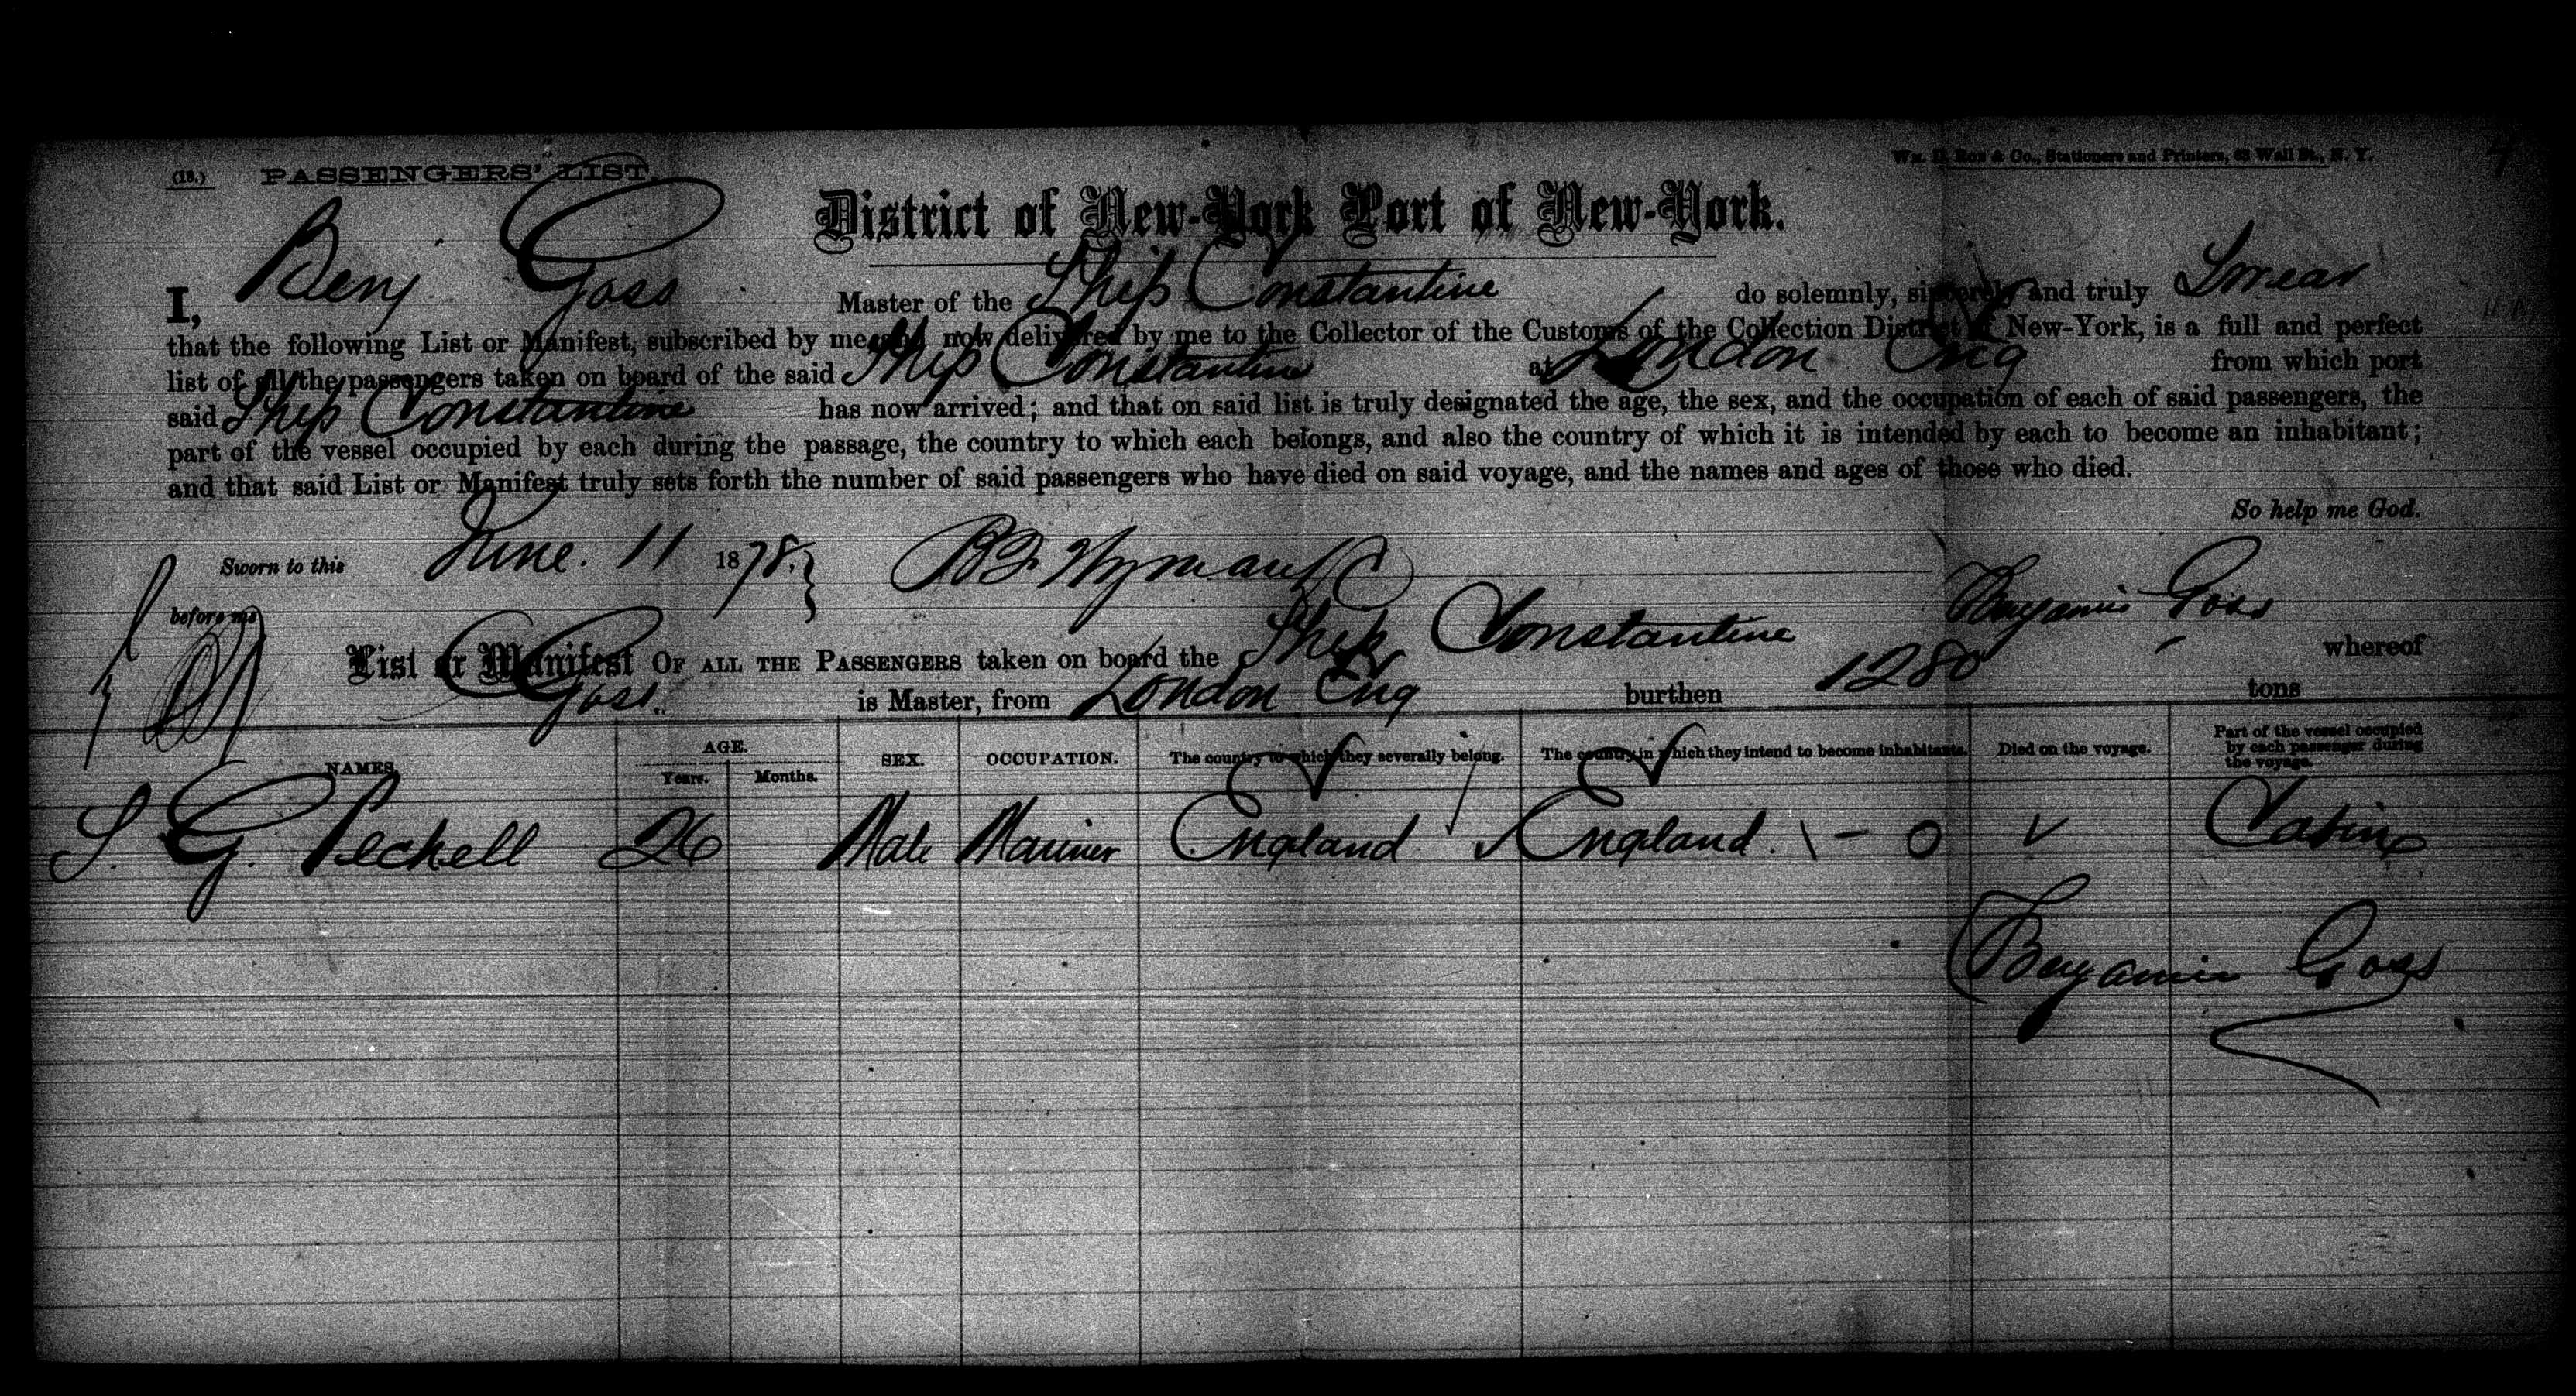 (18.) PASSENGERS' LIST. Wm. D. Roe & Co., Stationers and Printers, Wall St., N. Y.
District of New-York Port of New-York.
I, Benj Goss Master of the Ship Constantine do solemnly, sincerely and truly Swear
that the following List or Manifest, subscribed by me and now delivered by me to the Collector of the Customs of the Collection District of New-York, is a full and perfect
list of all the passengers taken on board of the said Ship Constantine at London Eng from which port
said Ship Constantine has now arrived; and that on said list is truly designated the age, the sex, and the occupation of each of said passengers, the
part of the vessel occupied by each during the passage, the country to which each belongs, and also the country of which it is intended by each to become an inhabitant;
and that said List or Manifest truly sets forth the number of said passengers who have died on said voyage, and the names and ages of those who died.
So help me God.
Sworn to this June. 11 1878. B F Wyman
before me Benjamin Goss
List or Manifest OF ALL THE PASSENGERS taken on board the Ship Constantine whereof
Goss. is Master, from London Eng burthen 1280 tons
NAMES. AGE. Years. Months. SEX. OCCUPATION. The country to which they severally belong. The country in which they intend to become inhabitants. Died on the voyage. Part of the vessel occupied by each passenger during the voyage.
S. G. Peckell 26 Male Mariner England England. \ - 0 Cabin
Benjamin Goss